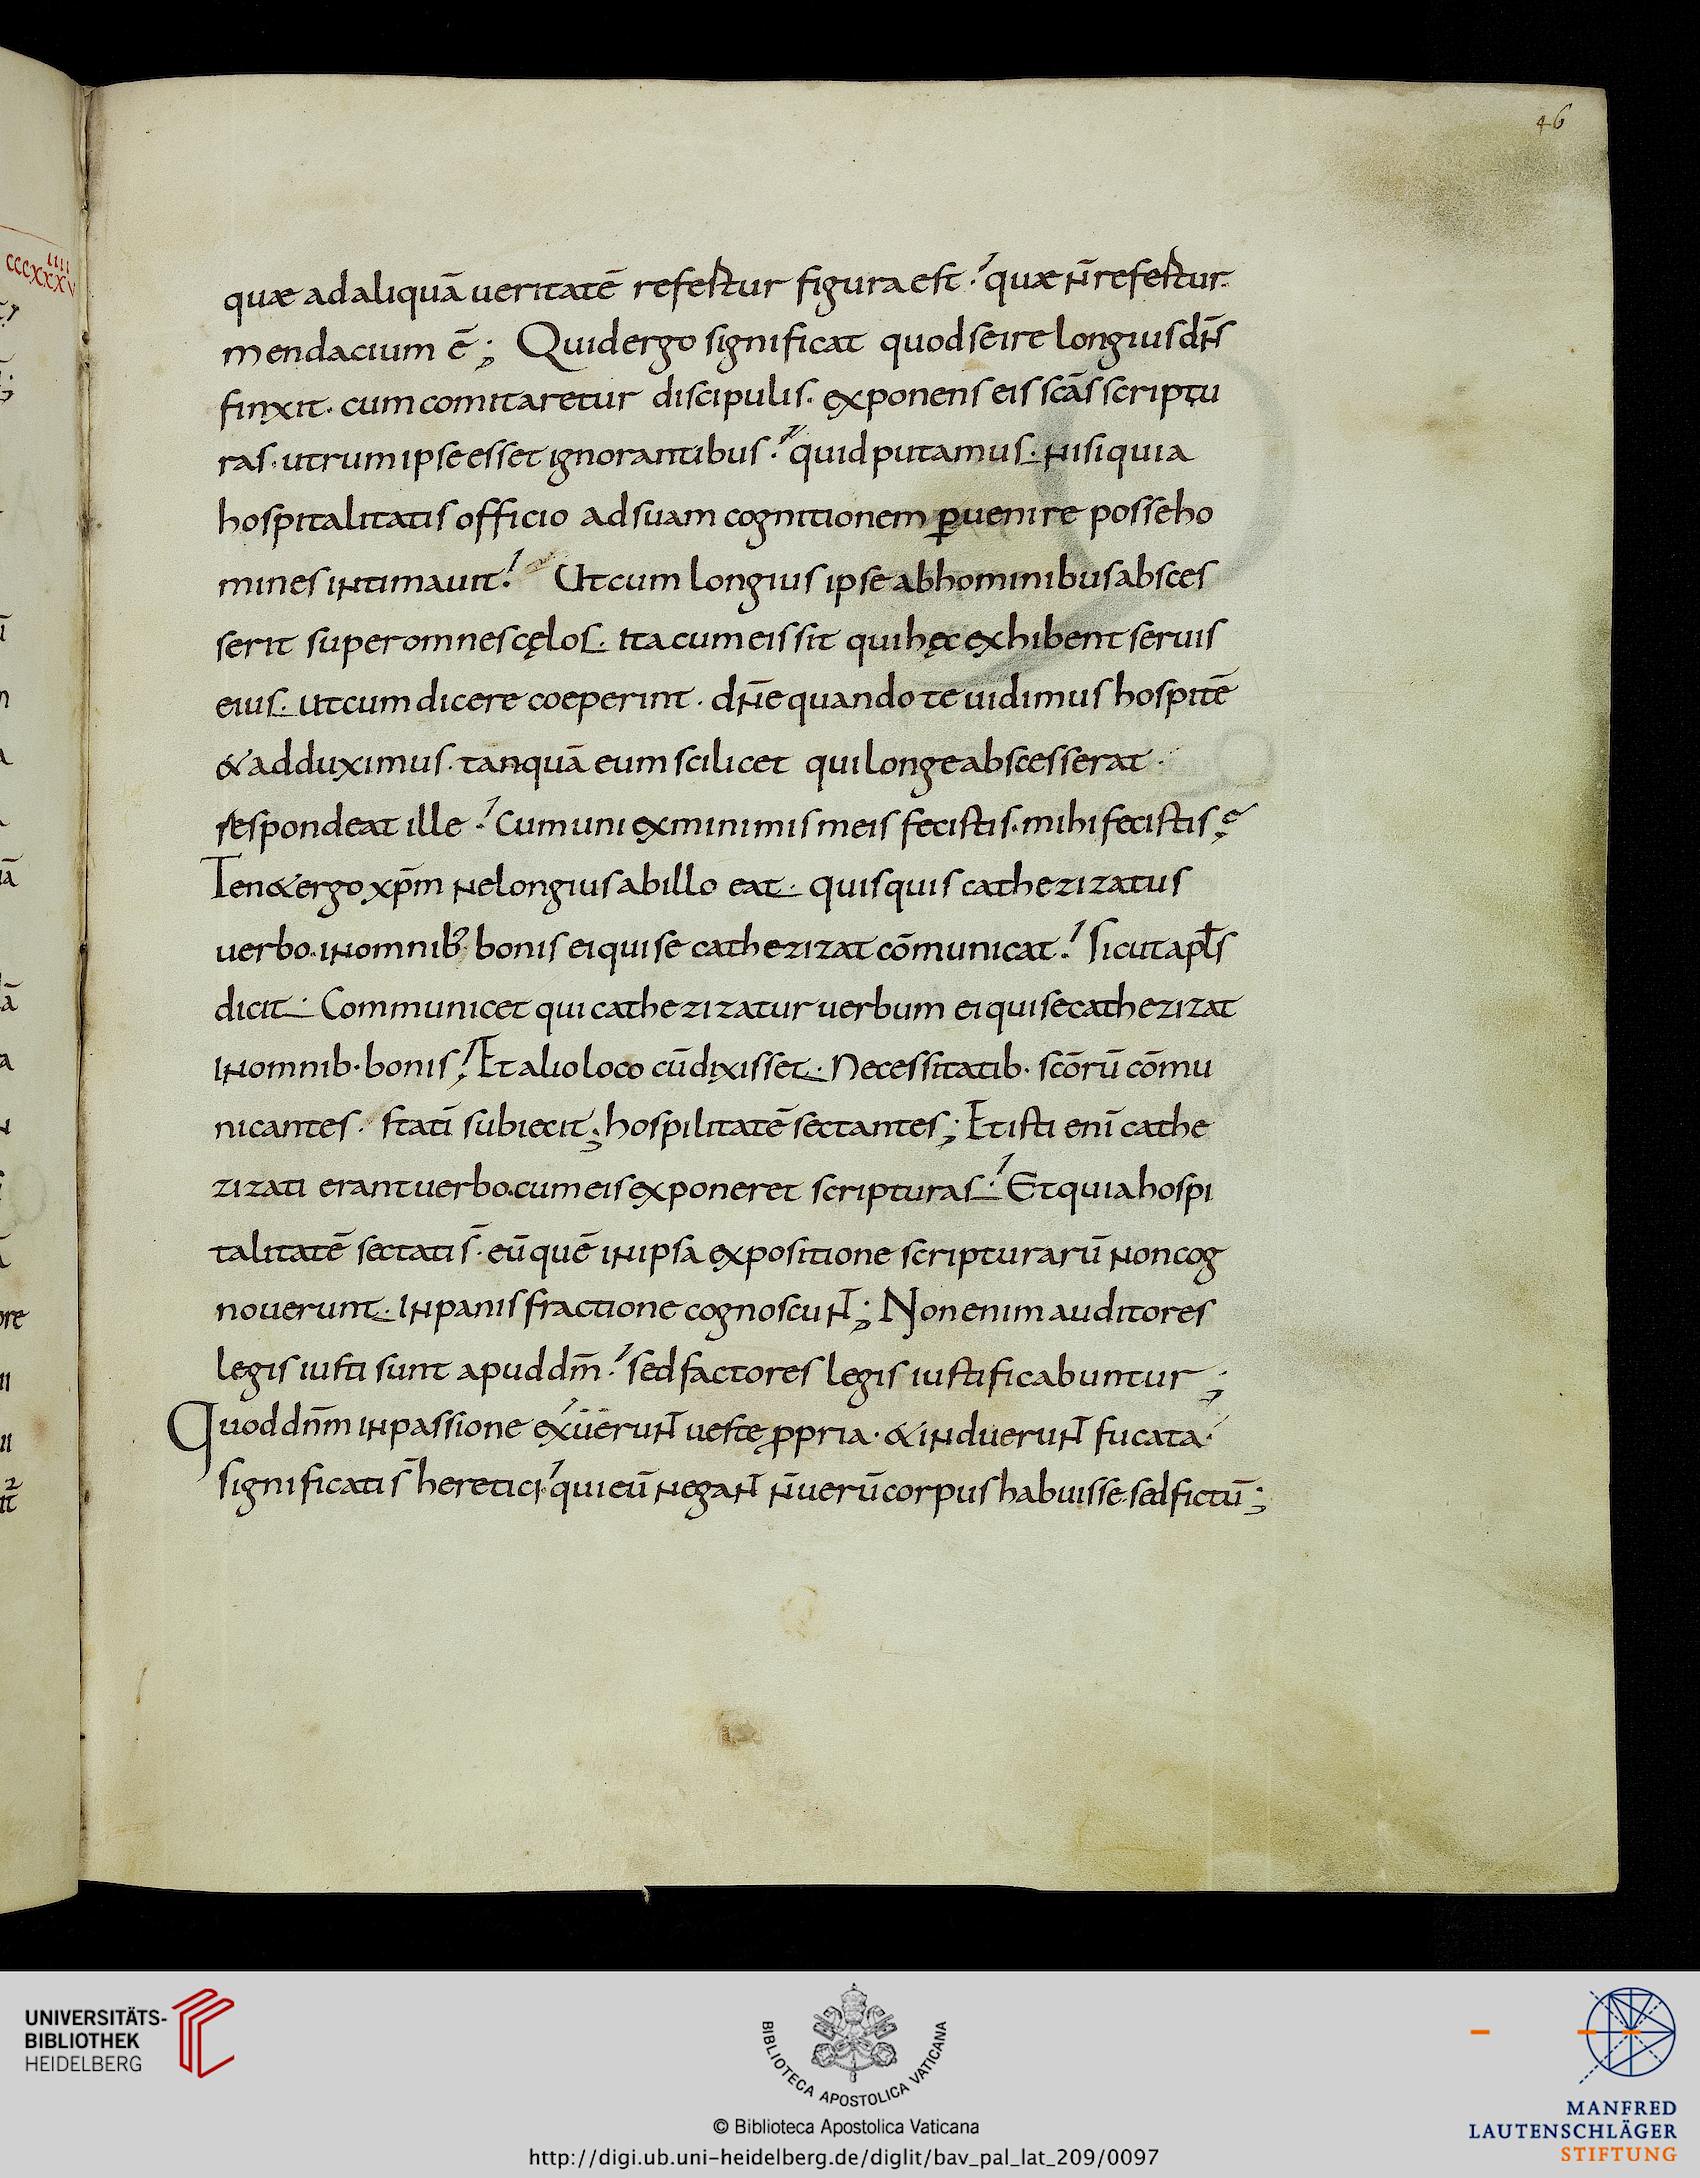 46
cccxxxv
iiii
quæ ad aliquā ueritatē refertur figura est. quæ n̄ refertur
mendacium ē; Quid ergo significat quod se ire longius dn̄s
finxit. cum comitaretur discipulis. exponens eis scās scriptu
ras. utrum ipse esset ignorantibus. quid putamus. nisi quia
hospitalitatis officio ad suam cognitionem ꝑuenire posse ho
mines intimauit. Ut cum longius ipse ab hominibus absces
serit super omnes cęlos. ita cum eis sit qui hęc exhibent seruis
eius. ut cum dicere coeperint. dn̄e quando te uidimus hospitē
& adduximus. tanquā eum scilicet qui longe abscesserat.
respondeat ille. Cum uni ex minimis meis fecistis. mihi fecistis;
Ten& ergo xp̄m ne longius ab illo eat. quisquis cathezizatus
uerbo. in omnib; bonis ei qui se cathezizat cōmunicat. Sicut apl̄s
dicit. Communicet qui cathezizatur uerbum ei qui se cathezizat
in omnib. bonis; Et alio loco cū dixisset. Necessitatib. scōrū cōmu
nicantes. statī subiecit; hospilitatē sectantes; Et isti enī cathe
zizati erant uerbo. cum eis exponeret scripturas. Et quia hospi
talitatē sectati s̄. eū quē in ipsa expositione scripturarū non cog
nouerunt. in panis fractione cognoscunt̄; Non enim auditores
legis iusti sunt apud dm̄. sed factores legis iustificabuntur;
Quod dn̄m in passione exuerunt̄ ueste ꝓpria. & induerunt̄ fucata.
significati s̄ heretici. qui eū negant̄ n̄ uerū corpus habuisse. sed fictū;
UNIVERSITÄTS-
BIBLIOTHEK
HEIDELBERG
BIBLIOTECA APOSTOLICA VATICANA
© Biblioteca Apostolica Vaticana
http://digi.ub.uni-heidelberg.de/diglit/bav_pal_lat_209/0097
MANFRED
LAUTENSCHLÄGER
STIFTUNG